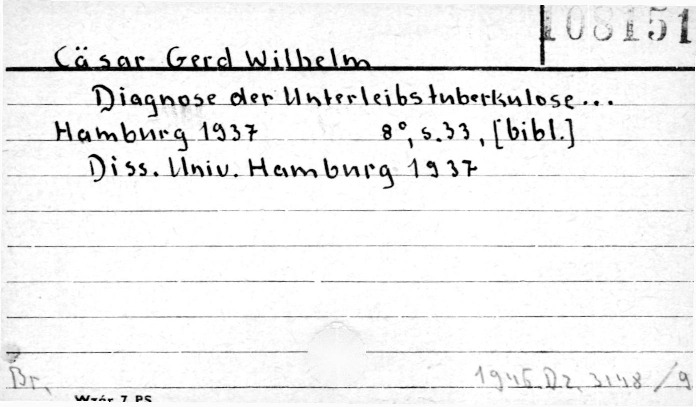 108151
Cäsar Gerd Wilhelm
Diagnose der Unterleibstuberkulose...
Hamburg 1937 8°, s.33, [bibl.]
Diss. Univ. Hamburg 1937
Br. 1946.Dz. 3148/9
Wzór 7 PS